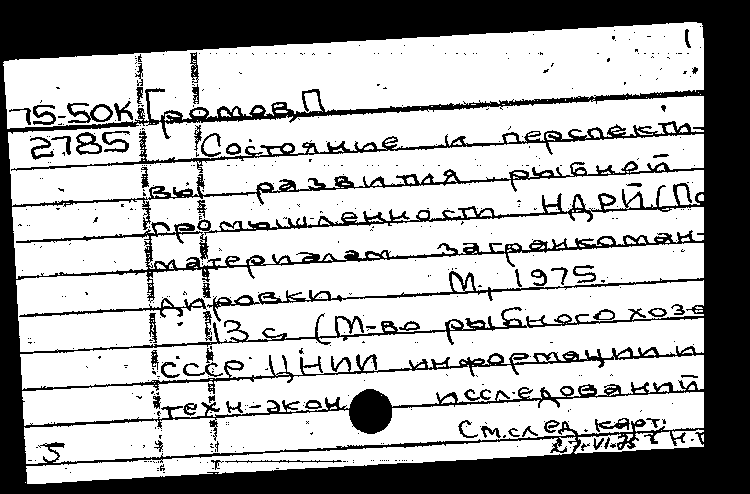 1
75-50К Громов, П
2785 Состояние и перспекти-
вы развития рыбной
промышленности НДРЙ (По
материалам загранкоман-
дировки. М., 1975.
13 с. (М-во рыбного хозв
СССР. ЦНИИ информации и
техн-экон исследований
См. след. карт.
5 27-VI-75 г Н.